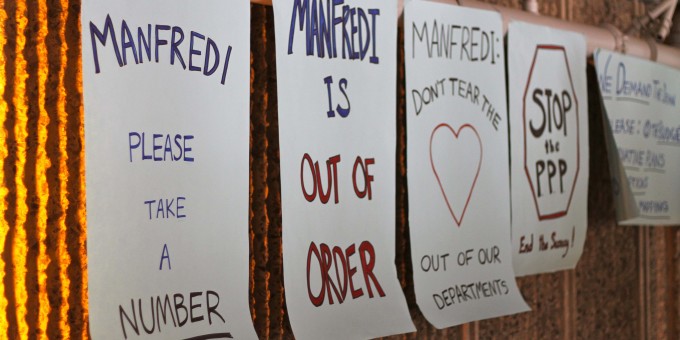 MANFREDI
PLEASE
TAKE
A
NUMBER
MANFREDI
IS
OUT OF
ORDER
MANFREDI:
DON'T TEAR THE
OUT OF OUR
DEPARTMENTS
STOP
the
PPP
End the Survey!
WE DEMAND